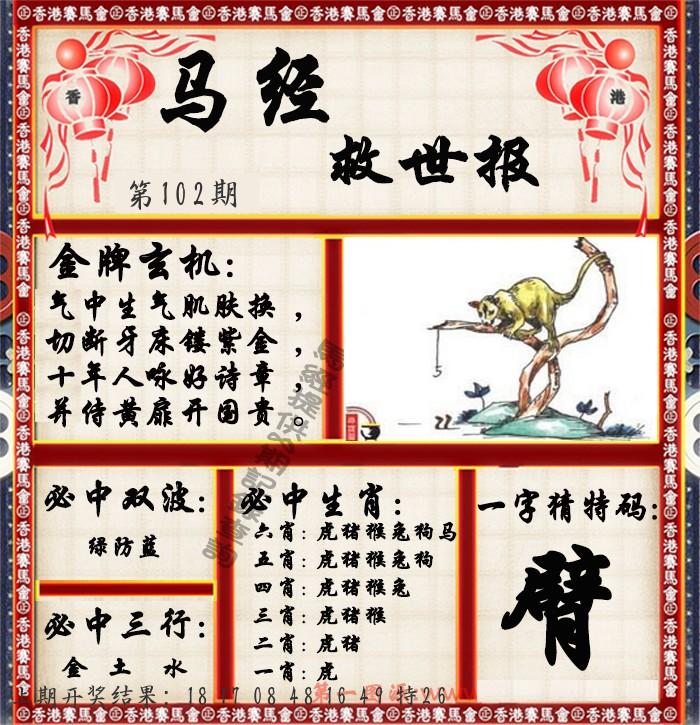 香港賽馬會㊣香港賽馬會㊣香港賽馬會㊣香港賽馬會㊣香港賽馬會㊣香港賽馬會
香
港
马经
救世报
第102期
金牌玄机:
气中生气肌肤换,
切断牙床镂紫金,
十年人咏好诗章,
并侍黄扉开国贵。
必中双波:
绿防蓝
必中三行:
金土水
必中生肖:
六肖:虎猪猴兔狗马
五肖:虎猪猴兔狗
四肖:虎猪猴兔
三肖:虎猪猴
二肖:虎猪
一肖:虎
一字猜特码:
臂
期开奖结果:18 17 08 48 16 49 特26
第一图源